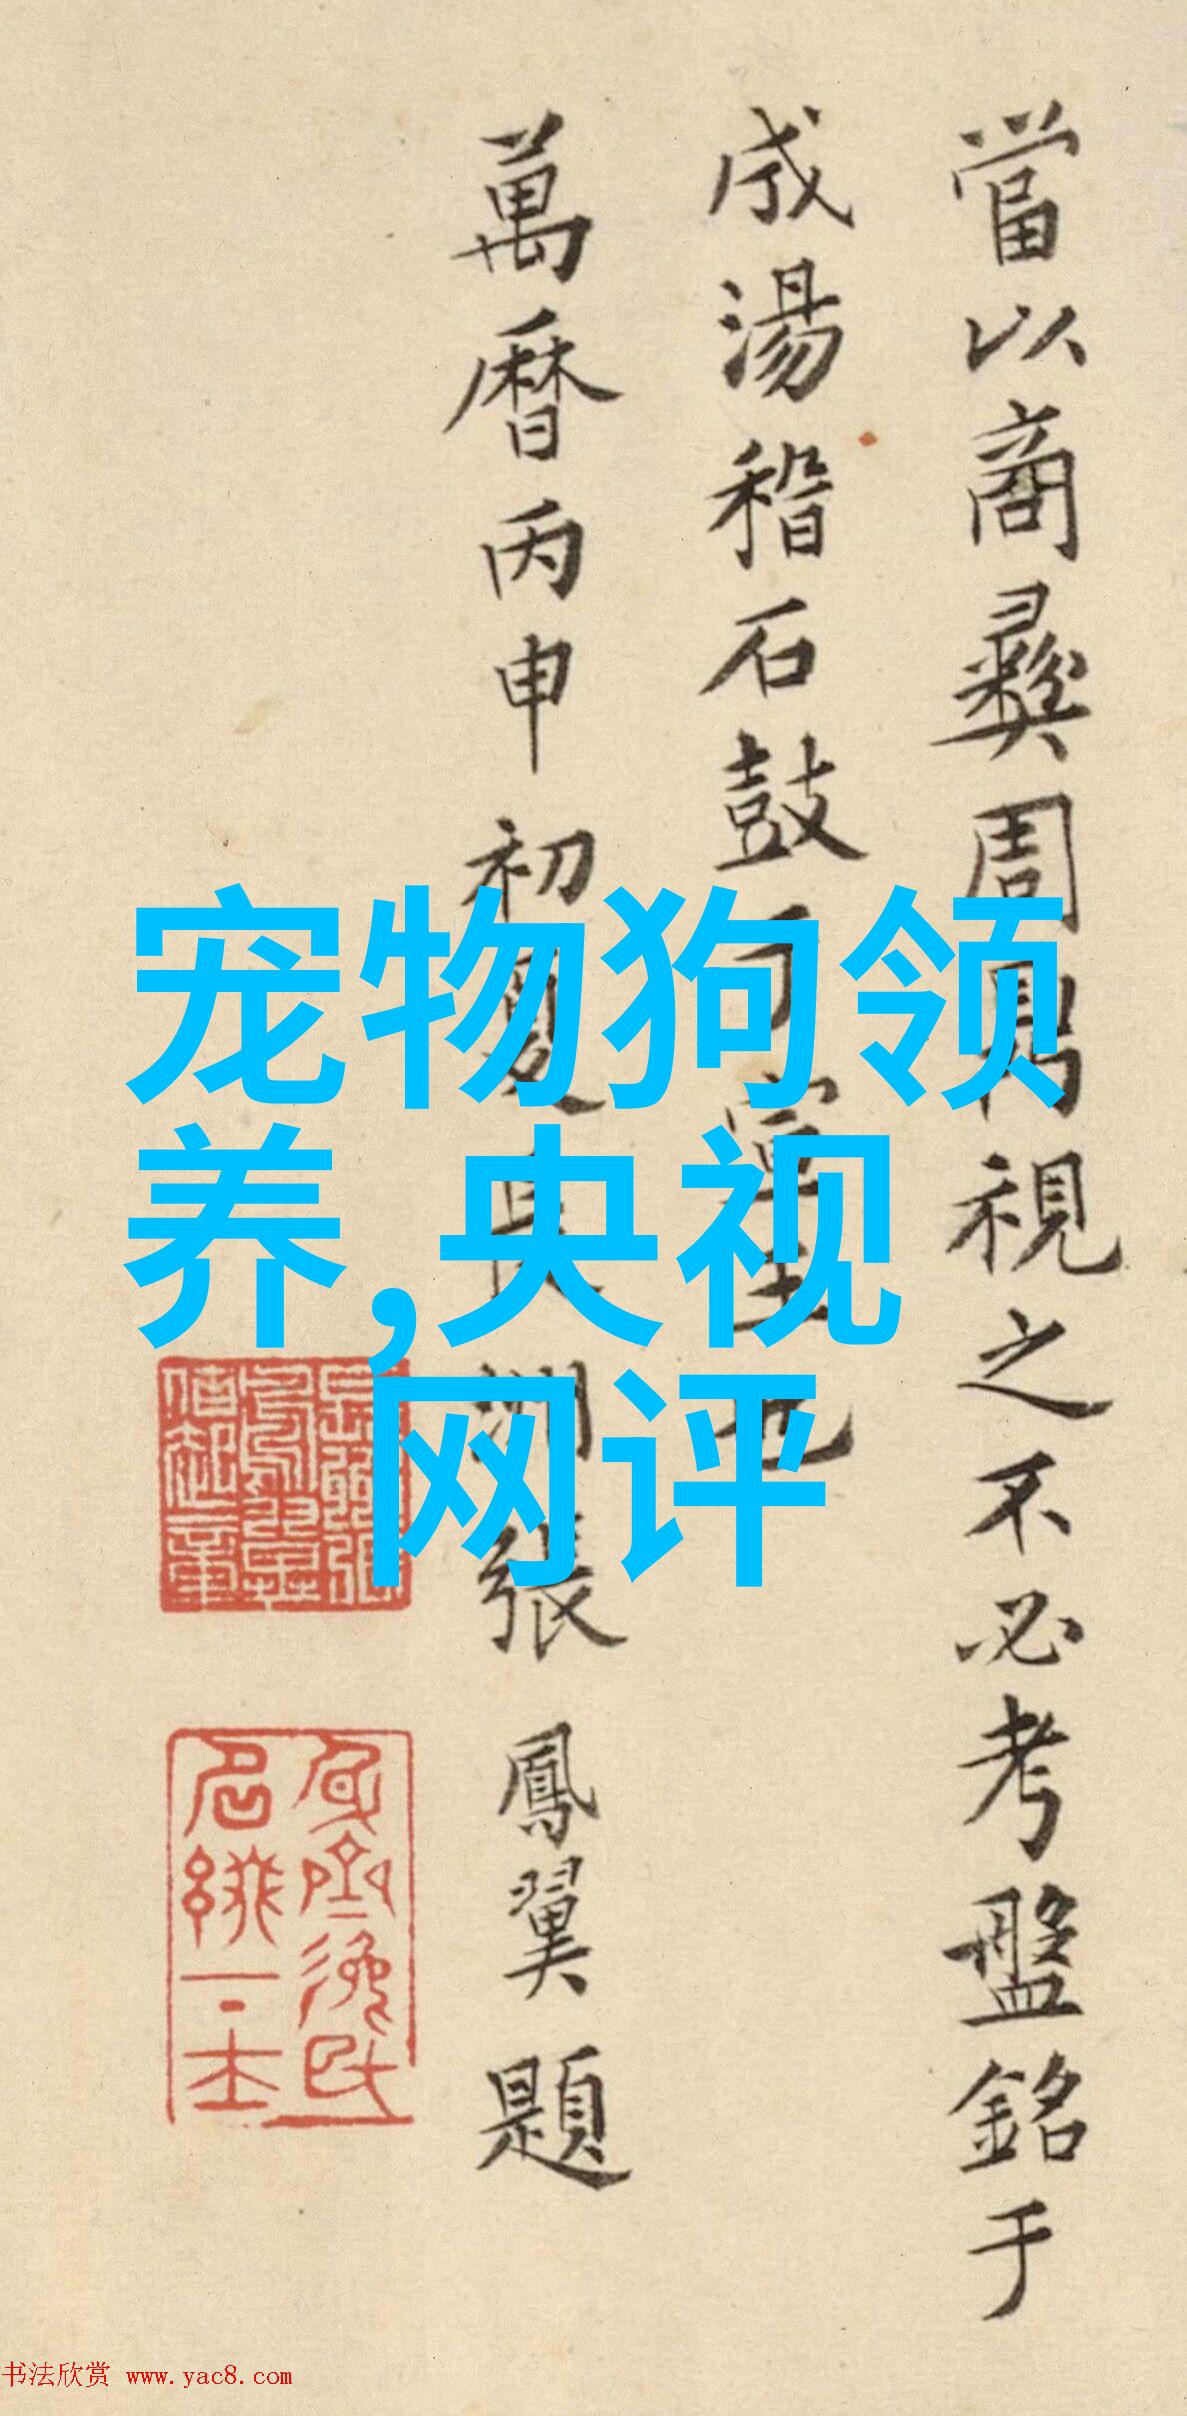 當以商彝周鼎視之不必考盤銘于
成湯稽石鼓于宣王也
萬曆丙申初夏長洲張鳳翼題
宠物狗领
养,央视
网评
书法欣赏 www.yac8.com